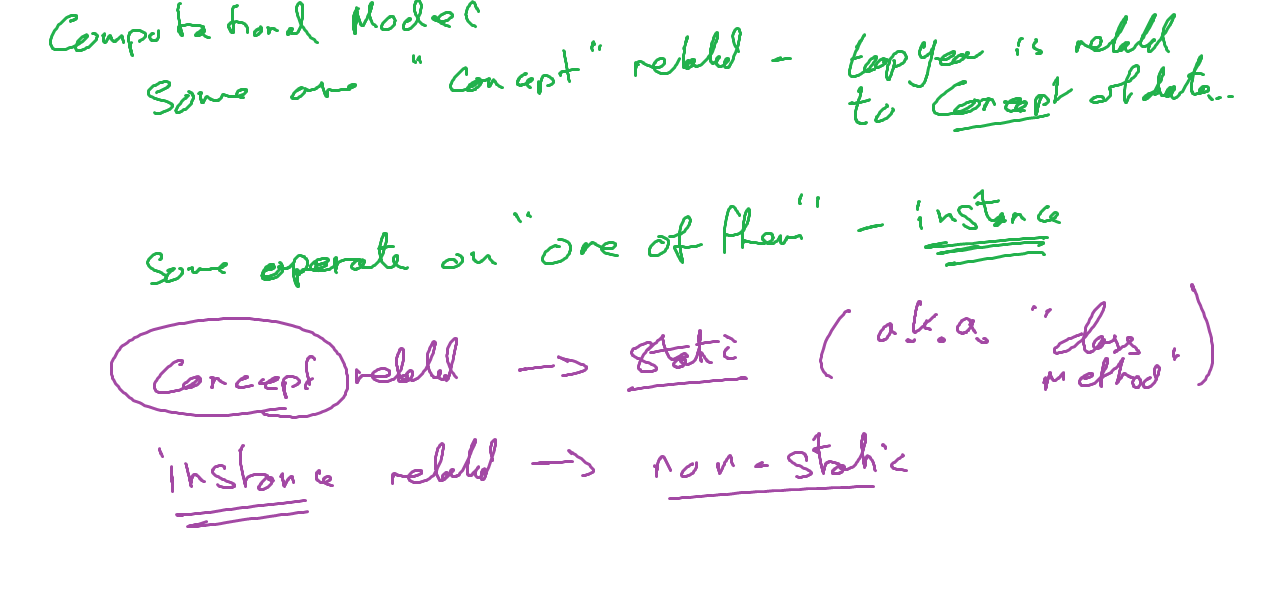 Computational Model
Some are "concept" related - leapyear is related
to Concept of data...
Some operate on "one of them" - instance
Concept related -> static (a.k.a. "class
method")
instance related -> non-static